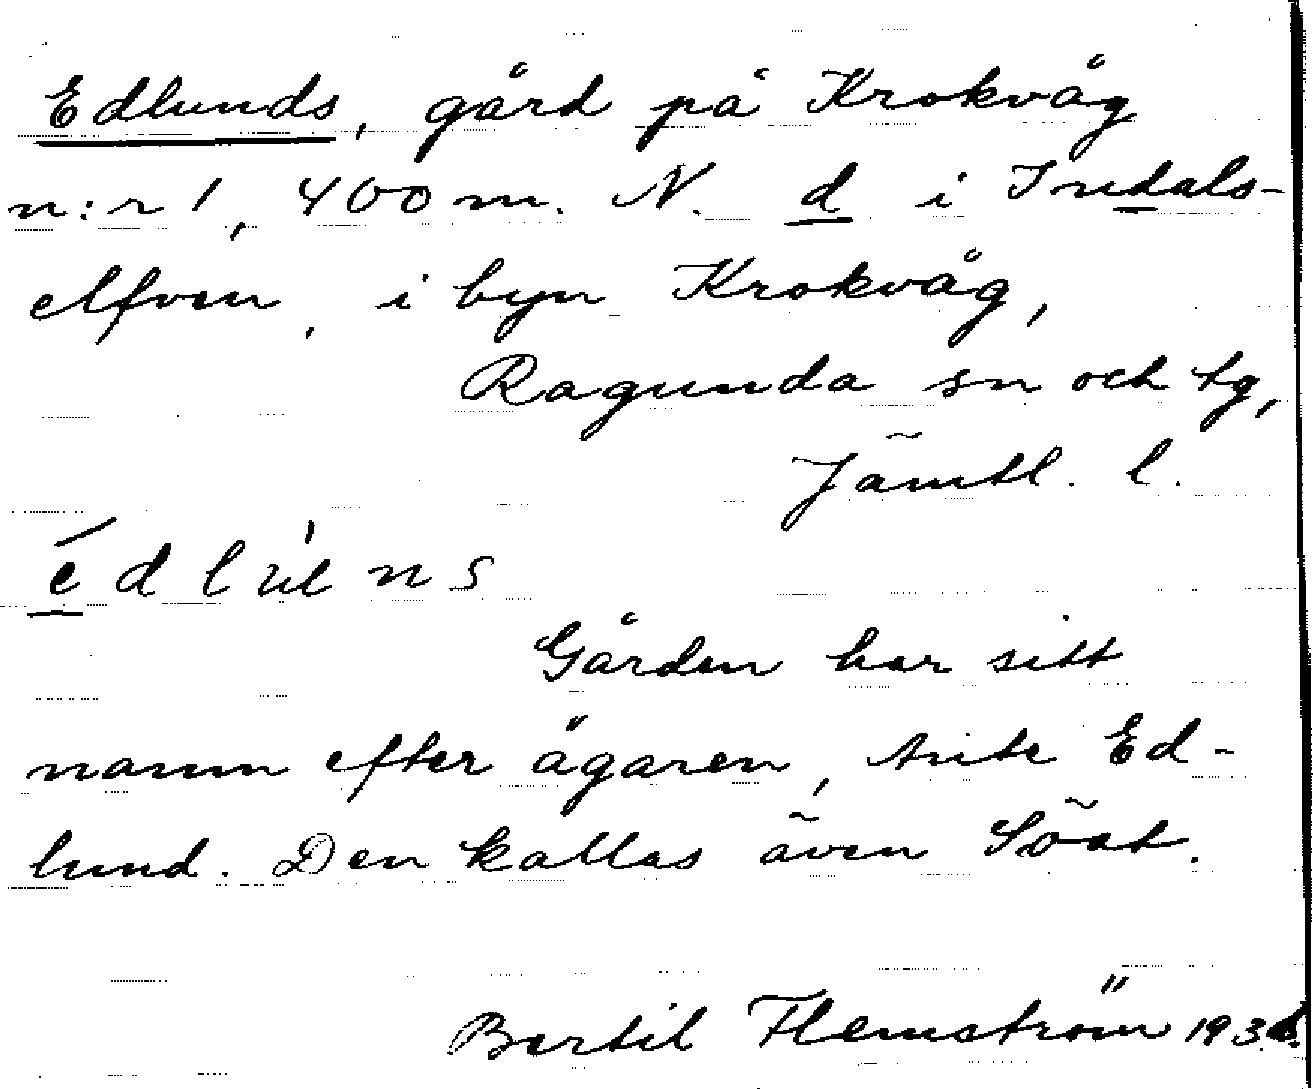 Edlunds, gård på Krokvåg
n:r 1, 400 m. N. d i Indals-
elfven, i byn Krokvåg,
Ragunda sn och tg,
Jämtl. l.
Gården har sitt
namn efter ägaren, Ante Ed-
lund. Den kallas även Söat.
Bertil Flemström